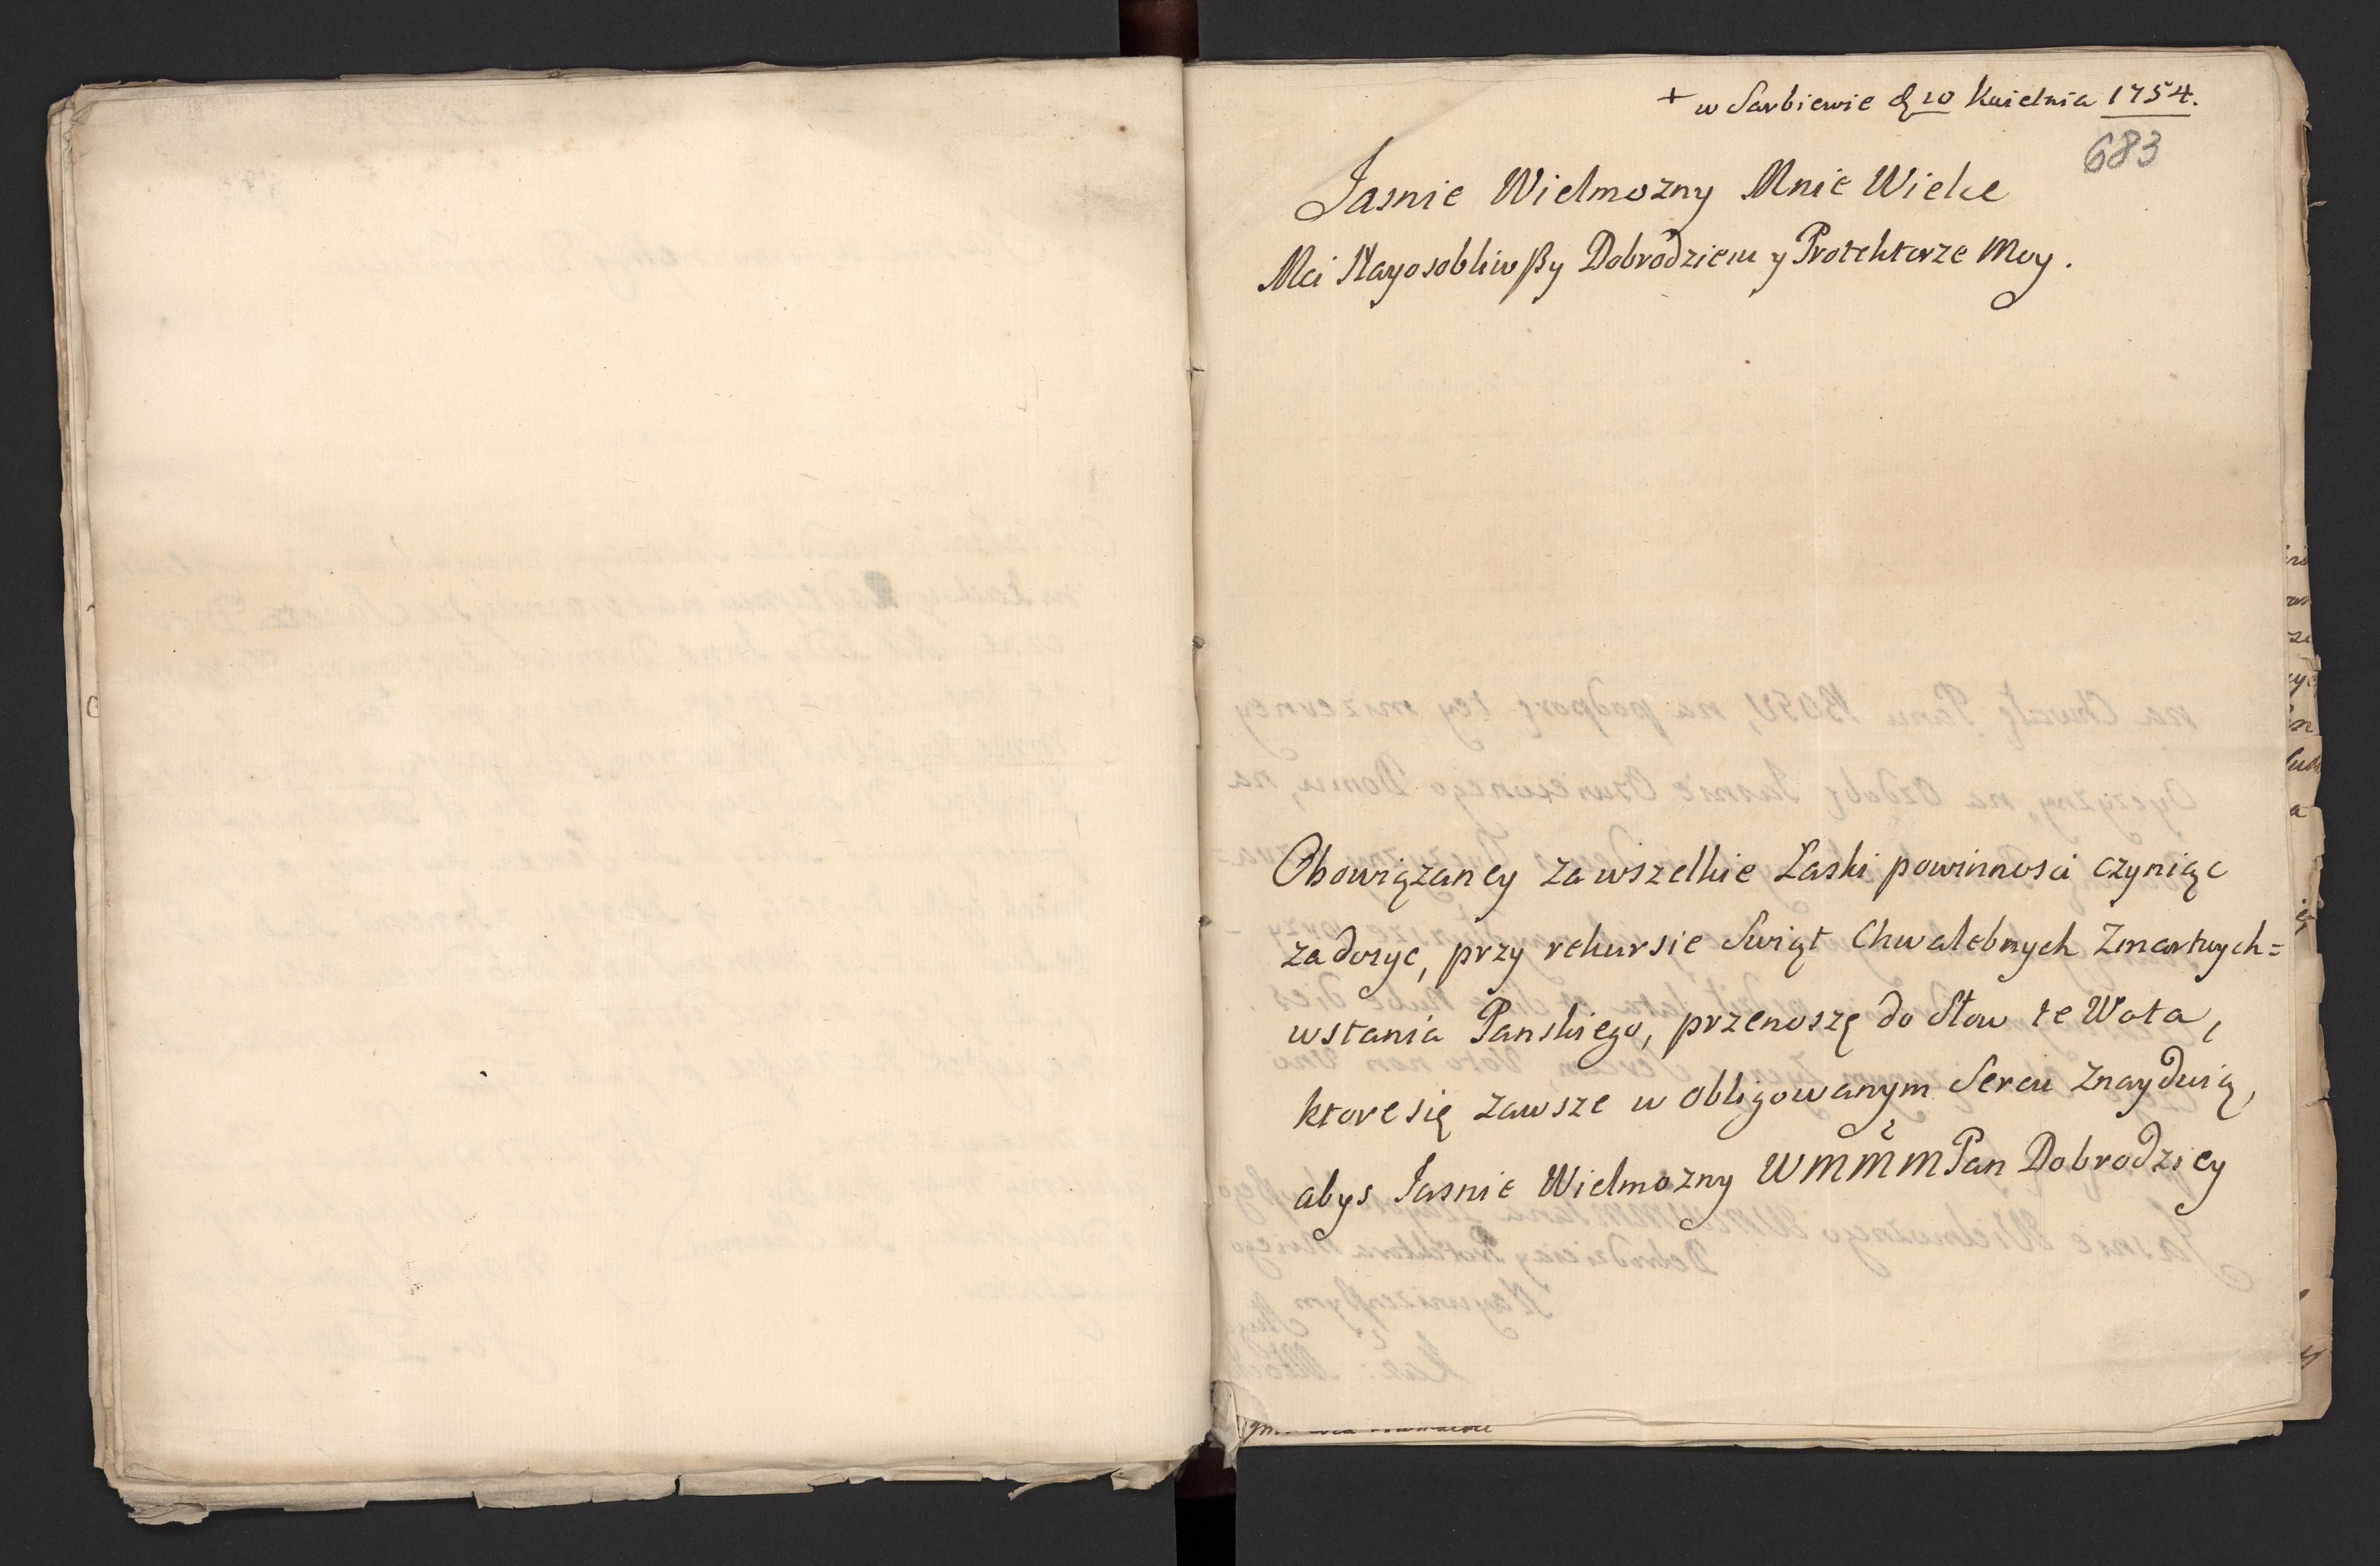 + w Sarbiewie d 10 Kwietnia 1754.
683
Jasnie Wielmozny Mnie Wielce
Mci Nayosobliwßy Dobrodzieiu y Protektorze Moy.
Obowiązaney za wszelkie Łaski powinnosci czyniąc
za dosyc, przy rekursie Swiąt Chwalebnych Zmartwych=
wstania Panskiego, przenoszę do Słow te Wota,
ktore się zawsze w obligowanym Sercu znayduią,
abys Jasnie Wielmozny WMMM Pan Dobrodziey